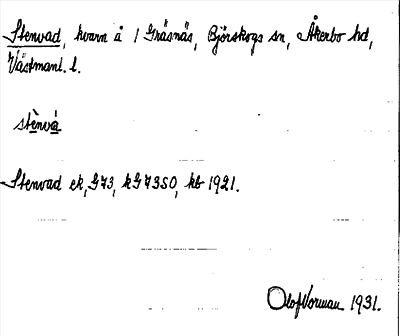 Stenvad, kvarn å / Gräsnäs, Björskogs sn, Åkerbo hd,
Västmanl. l.
stènvá
Stenvad ek, G73, kG73SO, kb 1921.
Olof Norman 1931.